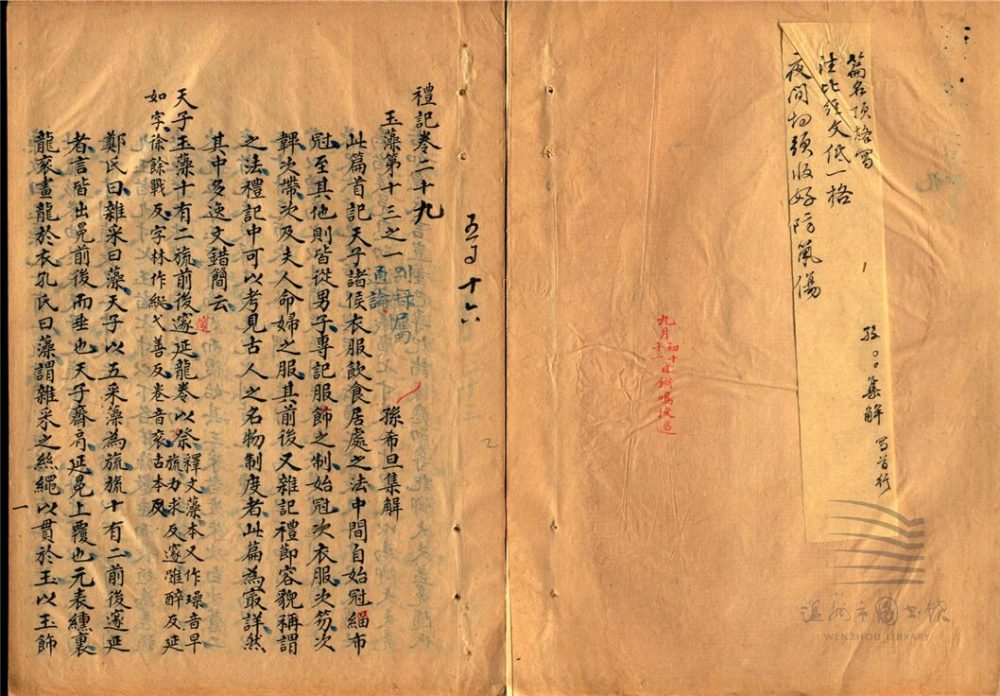 篇名頂格写
注比經文低一格
夜間切須收好防氣傷
孫〻集解
写首行
九月初十日
十一
禮記卷二十九
五万十六
玉藻第十三之一
别錄屬
通論
孫希旦集解
此篇首記天子諸侯衣服飲食居處之法中間自始冠緇布
冠至其他則皆從男子專記服飾之制始冠次衣服次笏次
韠次帶次及夫人命婦之服其前後又雜記禮節容貌稱謂
之法禮記中可以考見古人之名物制度者此篇為最詳然
其中多逸文錯簡云
天子玉藻十有二旒前後邃延龍卷以祭釋文藻本又作璪音早
旒力求反邃雖醉反延
邃
如字徐餘戰反字林作綖弋善反卷音衮古本反
鄭氏曰雜采曰藻天子以五采藻為旒旒十有二前後邃延
者言皆出冕前後而垂也天子齊肩延冕上覆也元表纁裏
龍衮畫龍於衣孔氏曰藻謂雜采之絲繩以貫於玉以玉飾
一
温州市图书馆
WENZHOU LIBRARY